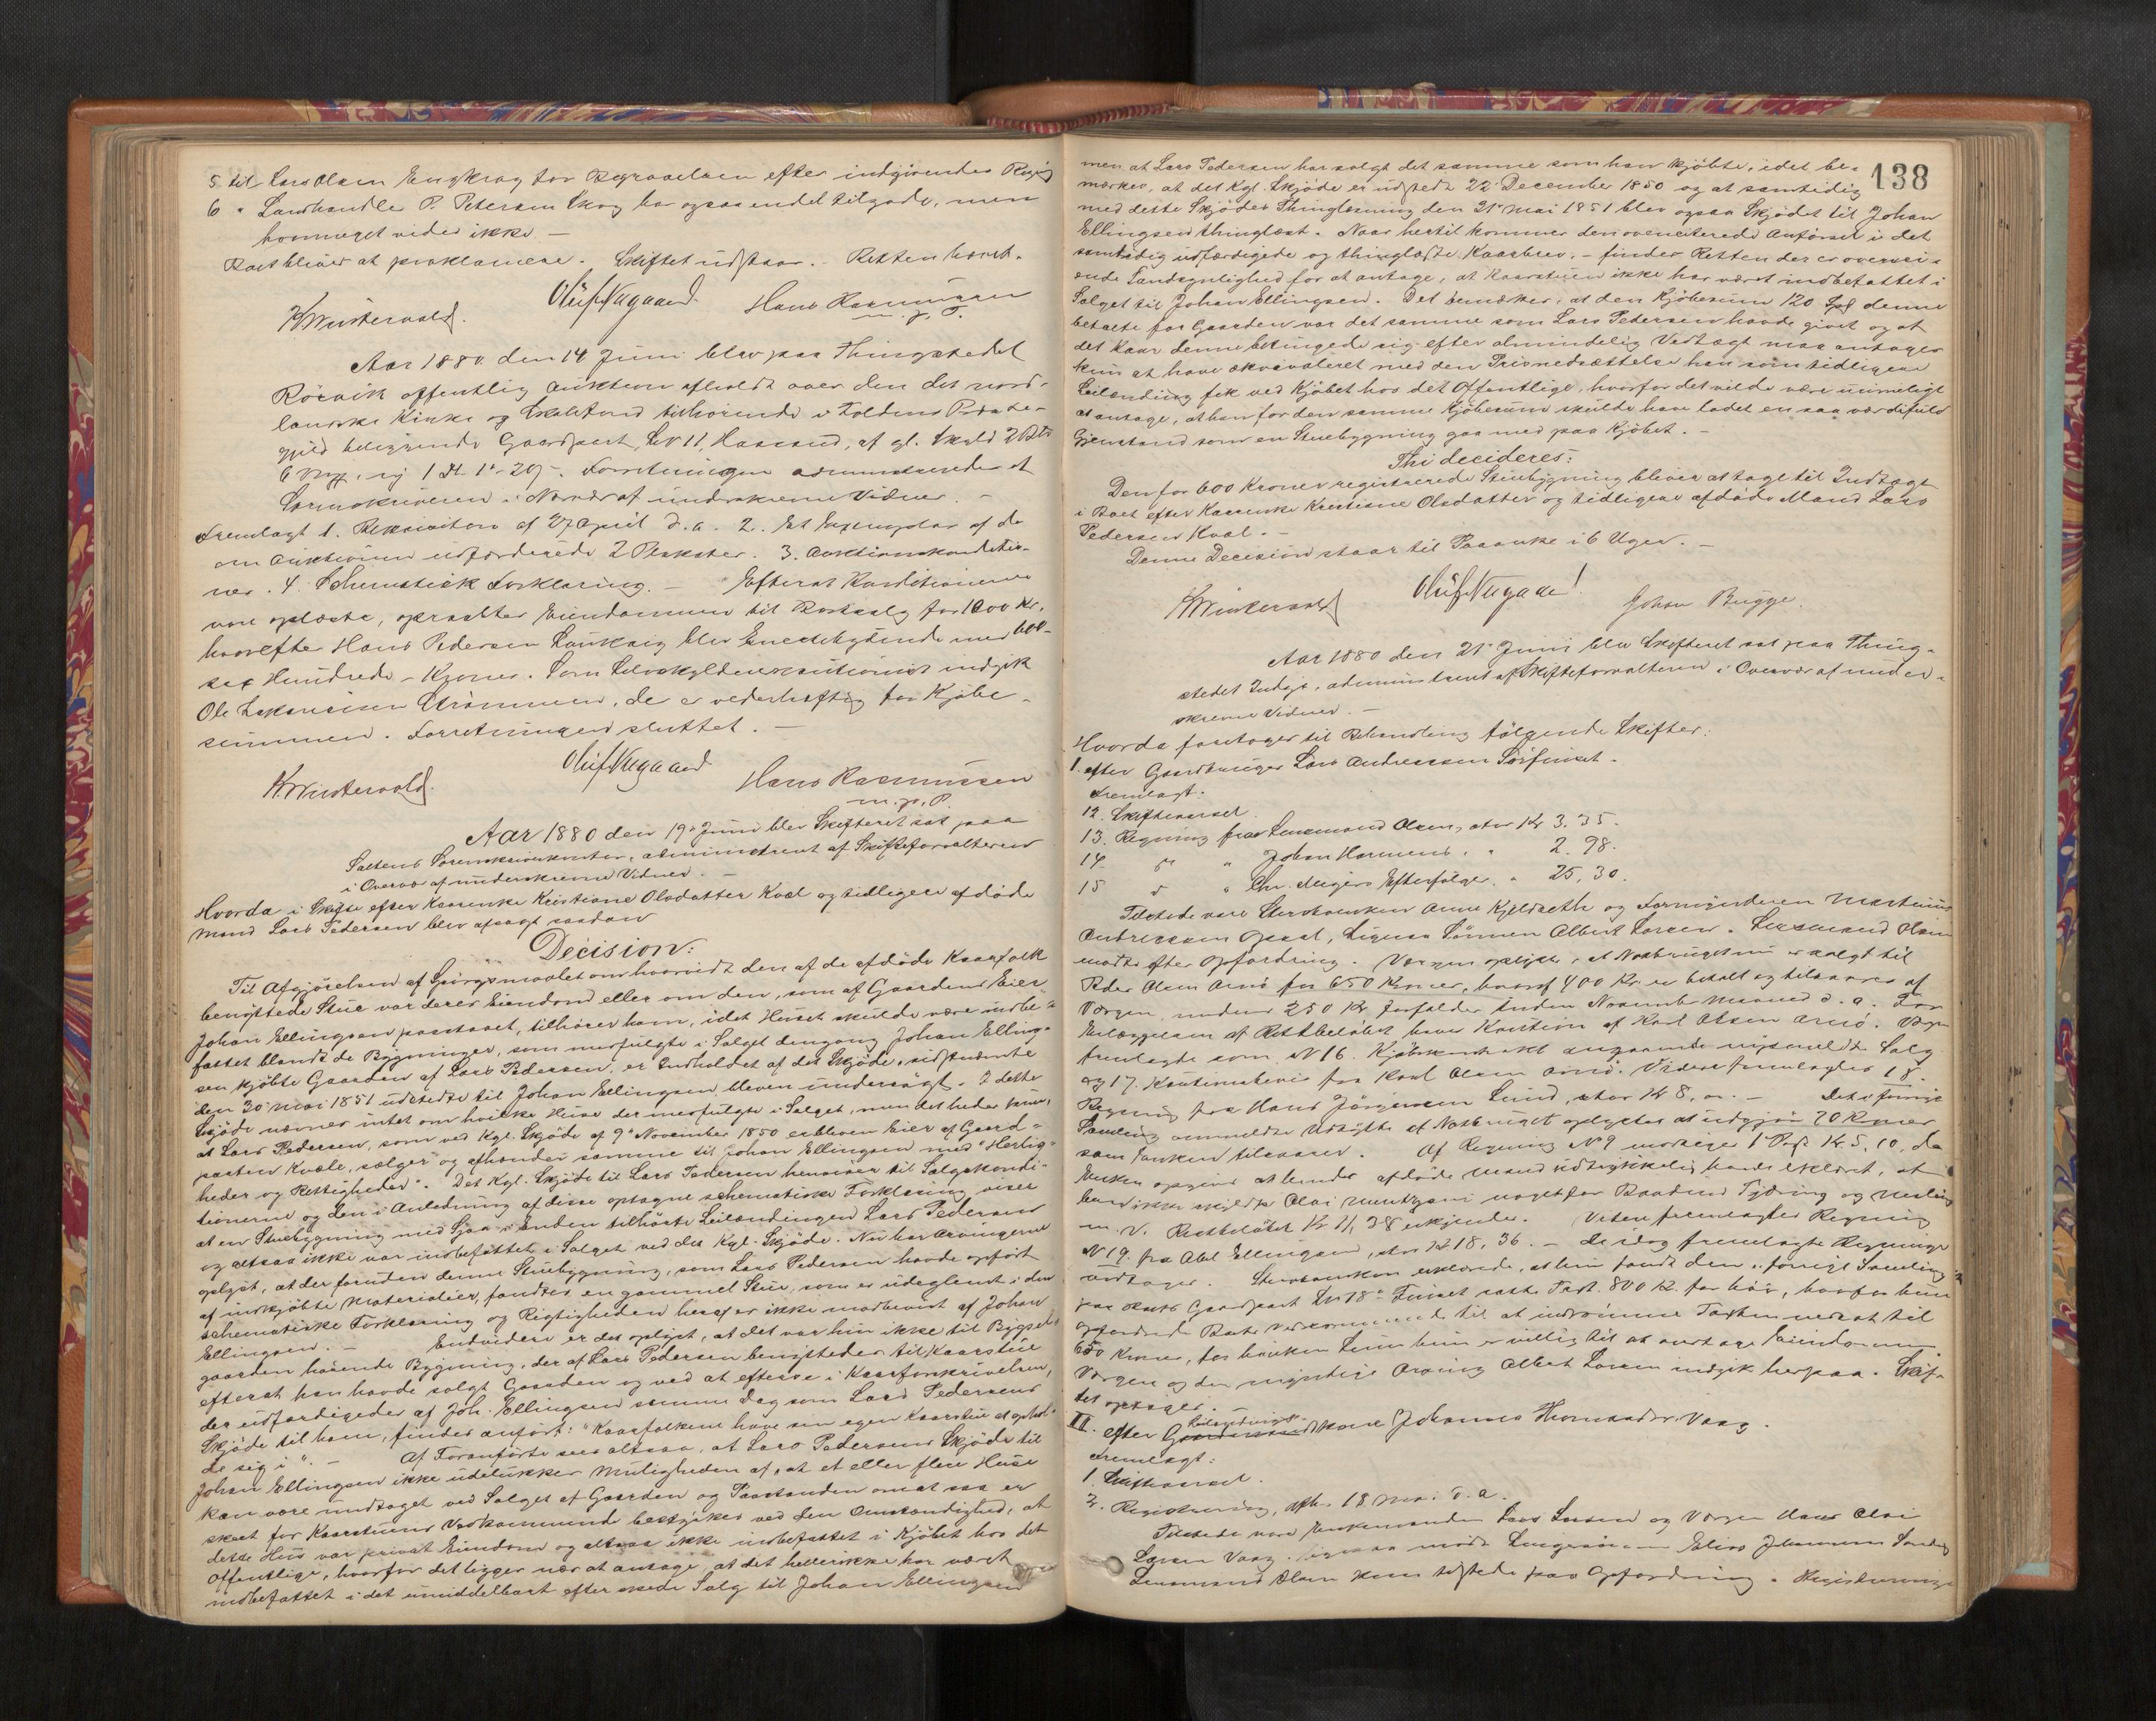 5 til Lars Olsen Engkrog for Begravelsen efter indgivendes Regng
6 " Landhandle P. Petersen Skog har ogsaa endel tilgode, men
hvormeget vides ikke. —
Boet bliver at proklamere. Skiftet udstaar. Retten hævet.
KWinterwold. Oluf Nygaard. Hans Rasmussen
m. p. P.
Aar 1880 den 14 Juni blev paa Thingstedet
Rösvik offentlig Auktion afholdt over den det nord-
lanske Kirke og Skolefond tilhörende i Foldens Præste-
gjeld beliggende Gaardpart, LN 11, af gl. Skyld 2
6 Mrk., ny 1 1 - 20. Forretningen administreredes af
Sorenskriveren i Nærvær af underskrevne Vidner. —
Fremlagt 1. Rekvisition af 27 April d. a. 2. Et Exemplar af de
om Auktionen udfærdigede 2 Plakater. 3. Auktionskonditio-
ner. 4. Schematisk Forklaring. — Efterat Konditionerne
vare oplæste, opraabtes Eiendommen til Bortsalg for 1000 Kr.
hvorefter Hans Pedersen blev Eneestbydende med 600 -
sex Hundrede - Kroner. Som Selvskyldnerkautionist indgik
Ole Zakariasen Strömmen, der er vederhæftig for Kjöbe-
summen. Forretningen sluttet. —
KWinterwold. Oluf Nygaard Hans Rasmussen
m. p. P.
Aar 1880 den 19de Juni blev Skifteret sat paa
Saltens Sorenskriverkontor, administreret af Skifteforvalteren
i Overvær af underskrevne Vidner. —
Hvorda i Skifte efter Karenke Kristiane Olsdatter Kval og tidligere afdöde
Mand Lars Pedersen blev afsagt saadan
Decision:
Til Afgjörelsen af Spörgsmaalet om hvorvidt den af de afdöde Kaarfolk
benyttede Stue var deres Eiendom eller om den, som af Gaardens Eier
Johan Ellingsen paastaaet, tilhörer ham, idet Huset skulde være indbe-
fattet blandt de Bygninger, som medfulgte i Salget dengang Johan Elling-
sen kjöbte Gaarden af Lars Pedersen, er Indholdet af det Skjöde, sidstnævnte
den 30 Mai 1851 udstedte til Johan Ellingsen bleven undersögt. I dette
Skjöde nævnes intet om hvilke Huse der medfulgte i Salget, men det heder kun,
at Lars Pedersen, som ved Kgl. Skjöde af 9de November 1850 er bleven Eier af Gaard-
parten Kvæle, sælger og afhænder samme til Johan Ellingsen med "Herlig-
heder og Rettigheder". Det Kgl. Skjöde til Lars Pedersen henviser til Salgskondi-
tionerne og den i Anledning af disse optagne schematiske Forklaring viser
at en Stuebygning med Sjaa i Enden tilhörte Leilændingen Lars Pedersen
og altsaa ikke var indbefattet i Salget ved det Kgl. Skjöde. Nu har Arvingerne
oplyst, at der foruden denne Stuebygning, som Lars Pedersen havde opfört
af indkjöbte Materialier, fandtes en gammel Stue, som er udeglemt i den
schematiske Forklaring og Rigtigheden heraf er ikke modbevist af Johan
Ellingsen. — Endvidere er det oplyst, at det var hin ikke til Bygsel-
gaarden hörende Bygning, der af Lars Pedersen benyttedes til Kaarstue
efterat han havde solgt Gaarden og ved at efterse i Kaarforskrivelsen,
der udfærdigedes af Joh. Ellingsen samme Dag som Lars Pedersens
Skjöde til ham, findes anfört: "Kaarfolkene have sin egen Kaarstue at ophol-
de sig i". — Af Foranförte sees altsaa, at Lars Pedersens Skjöde til
Johan Ellingsen ikke udelukker Muligheden af, at et eller flere Huse
kan være undtaget ved Salget af Gaarden og Paastanden om at saa er
skeet for Kaarstuens Vedkommende bestyrkes ved den Omstændighed, at
dette Hus var privat Eiendom og altsaa ikke indbefattet i Kjöbet hos det
Offentlige, hvorfor det ligger nær at antage at det hellerikke har været
indbefattet i det umiddelbart efter skede Salg til Johan Ellingsen
138
men at Lars Pedersen har solgt det samme som han kjöbte, idet be-
mærkes, at det Kgl. Skjöde er udstedt 22 December 1850 og at samtidig
med dette Skjödes Thinglæsning den 31te Mai 1851 blev ogsaa Skjödet til Johan
Ellingsen thinglæst. Naar hertil kommer den ovenciterede Anförsel i det
samtidig udfærdigede og thinglæste Kaarbrev, - finder Retten der er overvei-
ende Sandsynlighed for at antage, at Kaarstuen ikke har været indbefattet i
Salget til Johan Ellingsen. Det bemærkes, at den Kjöbesum 120 Spd denne
betalte for Gaarden var det samme som Lars Pedersen havde givet og at
det Kaar denne betingede sig efter almindelig Vedtægt maa antages
kun at have ækvivaleret med den Prisnedsættelse han som tidligere
Leilænding fik ved Kjöbet hos det Offentlige, hvorfor det vilde være urimeligt
at antage, at han for den samme Kjöbesum skulde have ladet en saa værdifuld
Gjenstand som en Stuebygning gaa med paa Kjöbet. —
Thi decideres:
Den for 600 Kroner registrerede Stuebygning bliver at tage til Indtægt
i Boet efter Karenke Kristiane Olsdatter og tidligere afdöde Mand Lars
Pedersen Kval. —
Denne Decision staar til Paaanke i 6 Uger. —
KWinterwold Oluf Nygaard Johan Bugge.
Aar 1880 den 21de Juni blev Skifteret sat paa Thing-
stedet Indyr, administreret af Skifteforvalteren i Overvær af under-
skrevne Vidner. —
Hvorda foretoges til Behandling fölgende Skifter:
1. efter Gaardbruger Lars Andreassen Sörfinset.
Fremlagt:
12. Skiftevarsel.
13. Regning fra Lensmand Olsen, stor Kr 3. 35.
14 " Johan Harmens, " 2. 98.
15 " Chr. Efterfölger " 25, 30.
Tilstede vare Stervboenken Anne Kjeldseth og Formynderen Martinus
Andreassen Opsal, ligesaa Sönnen Albert Larsen. Lensmand Olsen
mödte efter Opfordring. Værgen oplyste, at Notbruget nu er solgt til
Peder Olsen Arnö for 650 Kroner, hvoraf 400 Kr er betalt og tilsvares af
Værgen, medens 250 Kr forfalder inden November Maaned d. a. For
Erlæggelsen af Restbelöbet haves Kaution af Karl Olsen Arnö. Værgen
fremlagde som N 16. Kjöbekontrakt angaaende nysmeldte Salg
og 17. Kautionsbevis fra Karl Olsen Arnö. Videre fremlagdes 18.
Regning fra Hans Jörgensen Lund, stor Kr 8, 00. — Det i forrige
Samling ommeldte Udbytte af Notbruget oplystes at udgjöre 70 Kroner
som Enken tilsvarer. Af Regning N 9 1 Post Kr. 5, 10, da
Enken opgiver at hendes afdöde Mand udtrykkelig havde erklæret, at
han ikke skyldte Olai noget for Baadens og
m. v. Restbelöbet Kr 11, 38 erkjendes. Videre fremlagdes Regning
N 19. fra Abel Ellingsen, stor Kr 18, 36. — De idag fremlagte Regninger
vedtages. Stervboenken erklærede, at hun fandt den i forrige Samling
paa Boets Gaardpart LN 18a Finset satte Taxt. 800 Kr. for höi, hvorfor hun
opfordrede Boets Vedkommende til at indrömme Taxten nedsat til
650 Kroner, for hvilken Sum hun er villig til at overtage Eiendommen.
Værgen og den myndige Arving Albert Larsen indgik herpaa. Skif-
tet optages.
II. efter Leilændings kone Johanna Vaag.
Fremlagt:
1. Skiftevarsel.
2. Registrering, afh. 18 Mai d. a.
Tilstede vare Enkemanden Lars Larsen og Værgen Hans Olai
Larsen Vaag. ligesaa mödte Elias Johannesen
Lensmand Olsen kom tilstede paa Opfordring. Registrerings